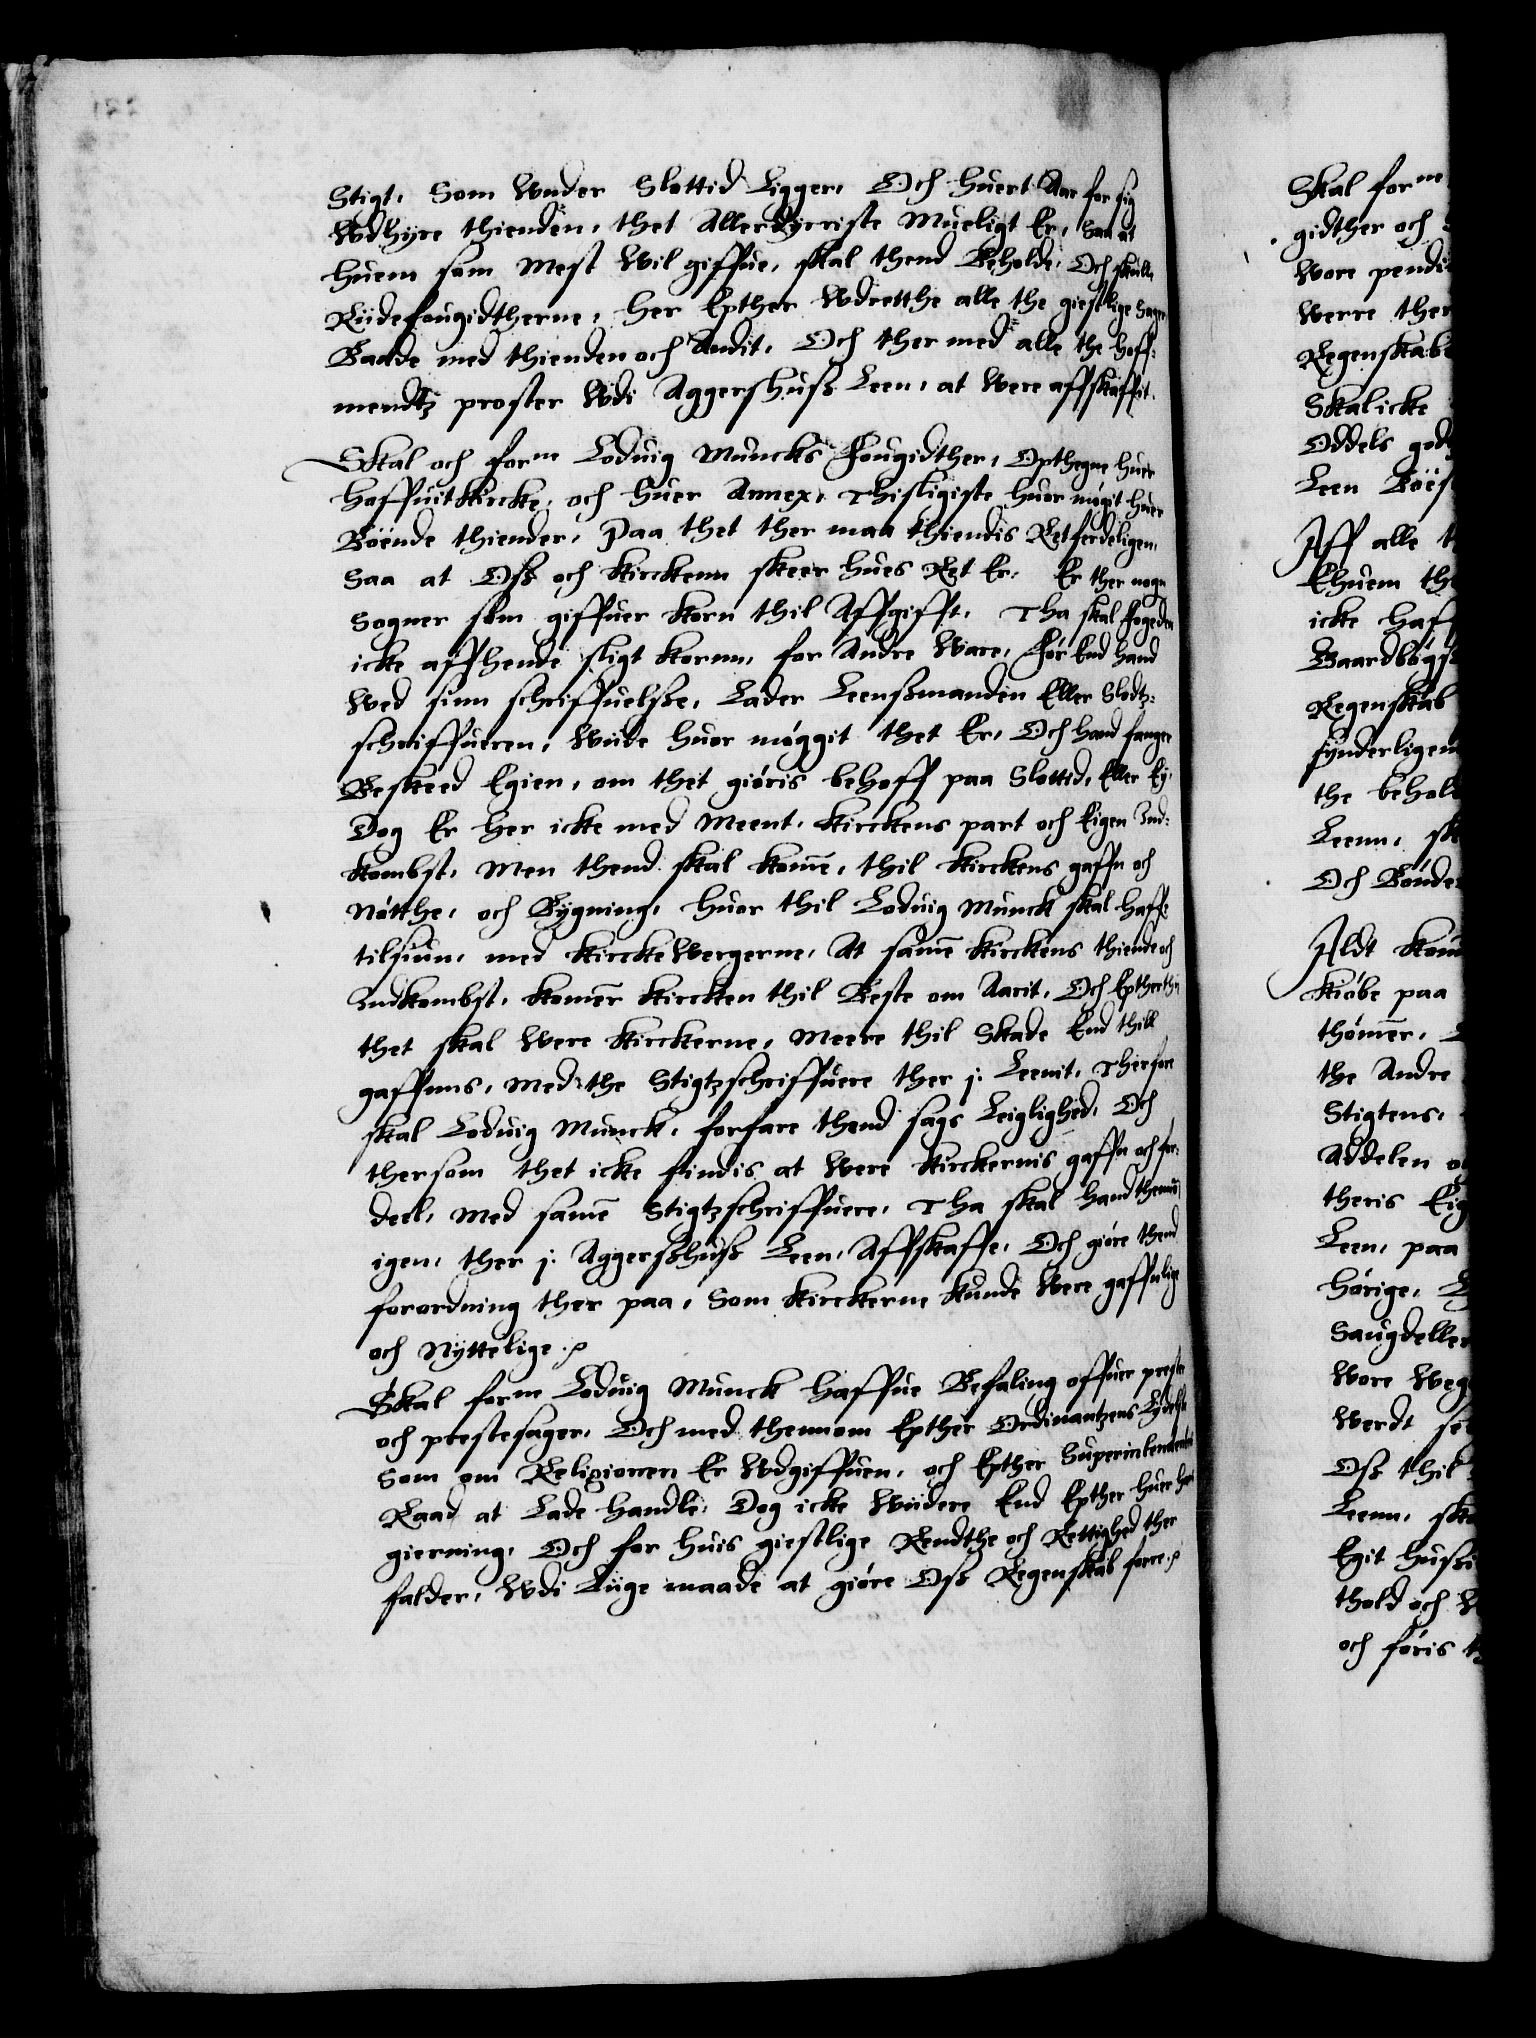 Stigt, Som Wnder Slottid Ligger, Och huert Aar for sig
Wdhyre thienden, thet Allerdyrriste Mueligt Er, Saa at
huem som Mest Wil giffue, skal thend Beholde, Och skulle
Riidefougidtherne, her Epther Wdretthe alle the giestlige Sager
Baade med thienden och Andit, Och ther med alle the hoff-
mendtz proster Wdi Aggershuss Leen, at Were affskaffit.
Skal och forne Lodvig Muncks Fougidther, Opthegne huer
haffuitkircke, och huer Annex, Thisligiste huor mögit huer
Böende thiender, Paa thet ther maa thiendis Retferdeligen,
Saa at Oss och kirckenn skeer hues Ret Er, Er ther nogn
Sogner som giffuer korn thil Affgifft, Tha skal Fogeden
icke affhende sligt kornn, for Andre Ware, För End hand
Wed sinn schriffuelsse, Lader Leenssmanden Eller Slodtz-
schriffueren, Wiide huor möggit thet Er, Och hand fanger
Beskeed Egien, om thet giöris behoff paa Slottid, Eller Ey,
Dog Er her icke med Meent, kirckens part och Eigen Ind-
kombst, Men thend skal komme, thil kirckens gaffn och
Nötthe, och Bygning, huor thil Lodvig Munck skal haffe
tilsiun, med kircke Wergerne, At samme kirckens thiende och
Indkombst, kommer kircken thil Beste om Aarit, Och Epther thj
thet skal Were kirckerne, Meere thil Skade End thill
gaffuns, Med the Stigtzschriffuere ther j Leenit, Therfore
skal Lodvig Munck, forfare thend sags Leiglighed, Och
thersom thet icke findis at Were kirckernis gaffn och for-
deel, Med samme Stigtzschriffuere, Tha skal hand thennom
igen, ther j Aggersshuss Leen, Affskaffe, Och giöre thend
forordning ther paa, Som kirckerne kunde Were gaffnlige
och Nyttelige.
Skal forne Lodvig Munck haffue Befaling offuer preste
och prestesager, Och med thennom Epther Ordinantzens Lydelse
Som om Religionen Er Wdgiffuen, och Epther Superintendentens
Raad at Lade handle, Dog icke Wiidere End Epther huer hans
gierning, Och for huis giestlige Rendthe och Rettighed ther
falder, Wdi Liige maade at giöre Oss Regenskab forre.
Skal forne
gidther och
Wore pendi
Werre ther
Regenskab
Skal icke
Oddels god
Leen
Aff alle
Ehuem th
icke haf
Gaardbögs
Regenskab
synderligen
the behol
Leenn, sk
Och Bönder
Aldt kom
kiöbe paa
thömmer,
the Andre
Stigtens,
Addelen
theris Eig
Leen, paa
hörige,
Saugdeller
Wore Weg
Werdt
Oss thil
Leenn, ska
Egit hussi
thold och
och föris